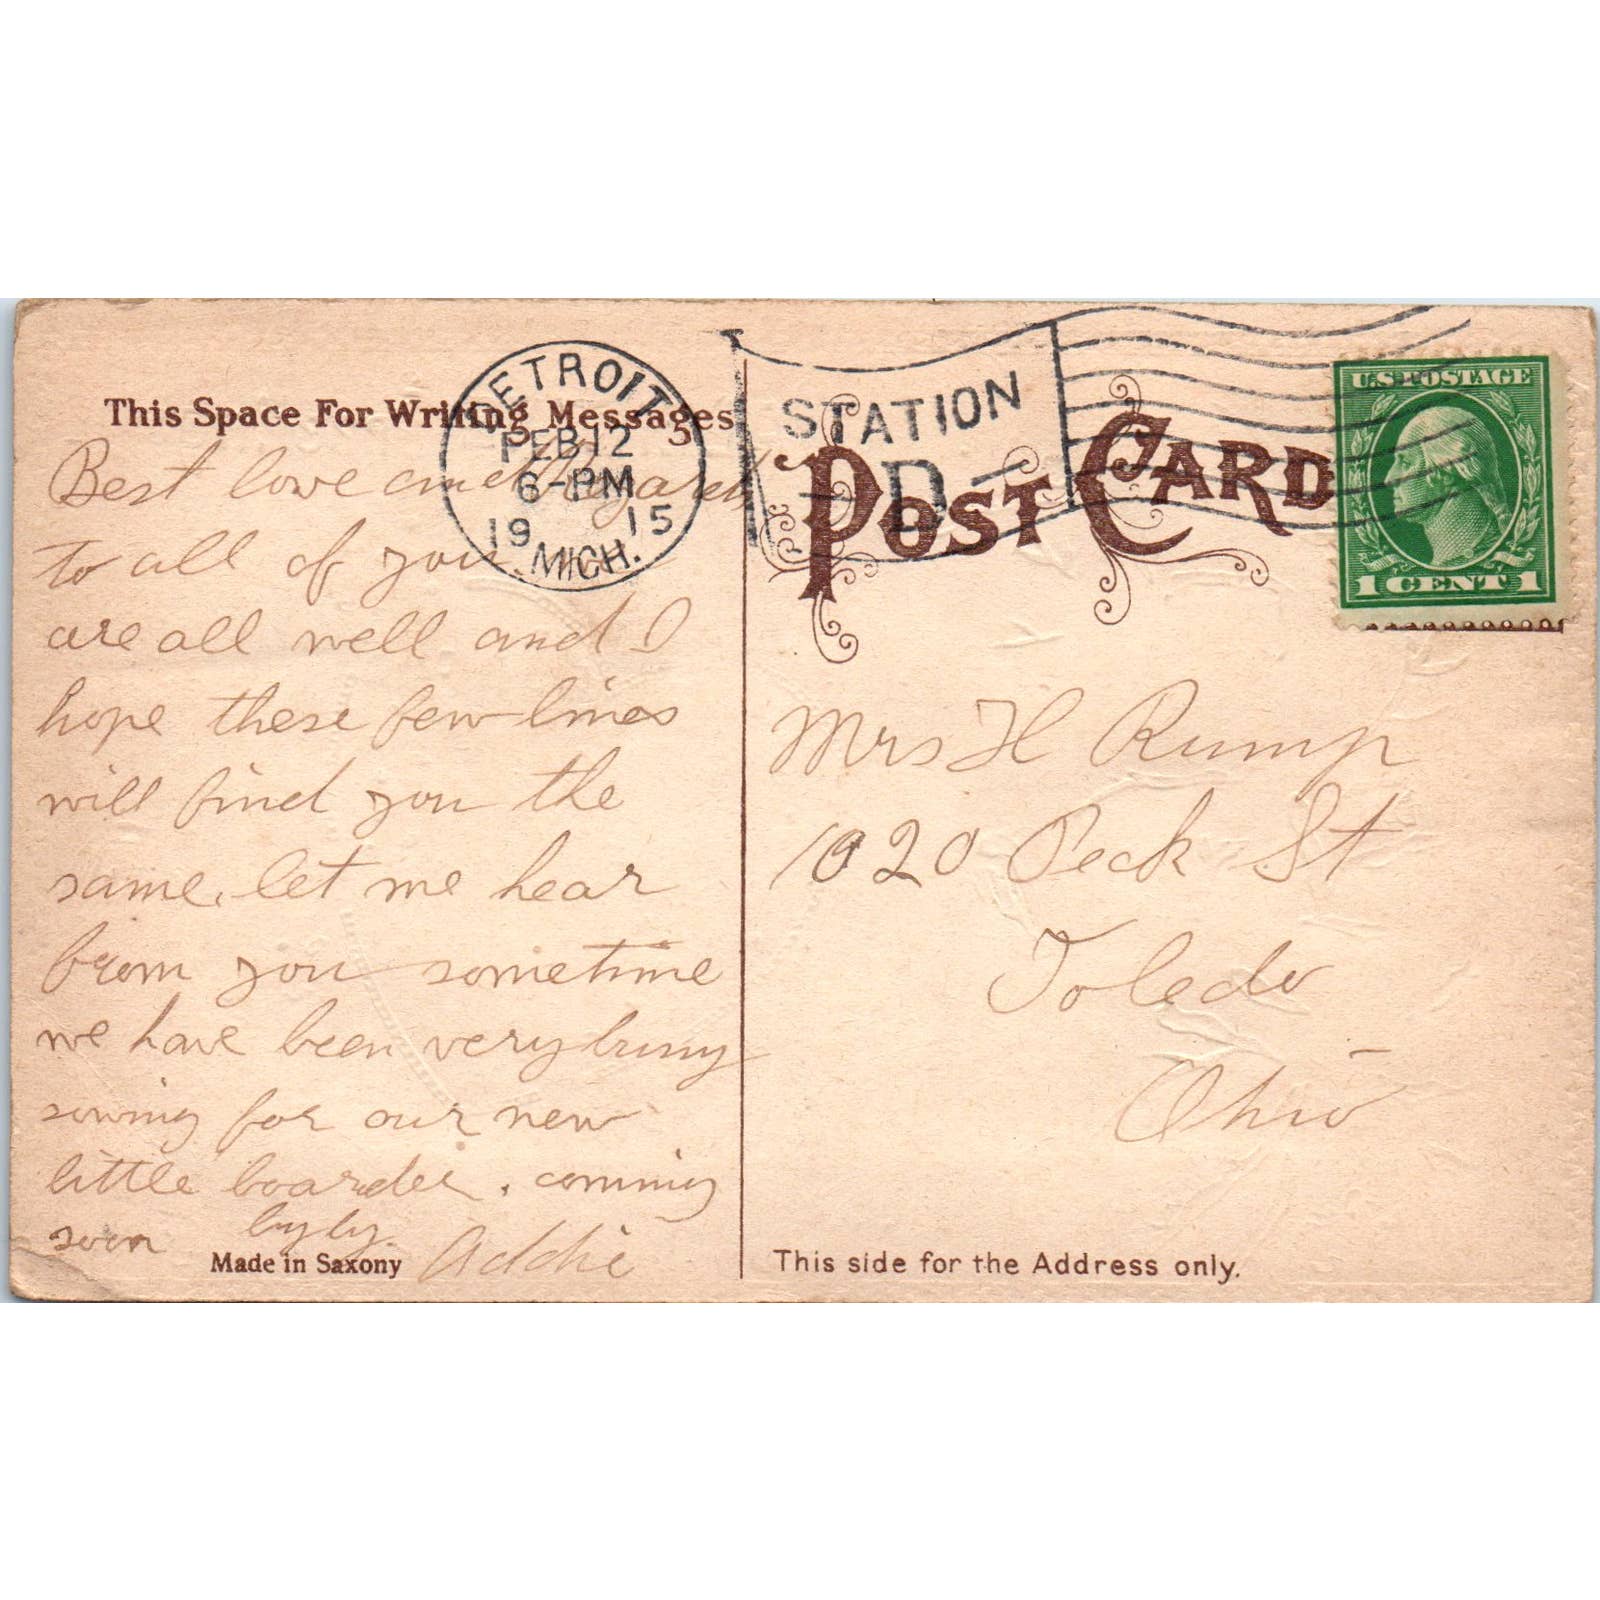 This Space For Writing Messages
DETROIT
FEB 12
6-PM
19 15
MICH.
STATION
D
POST CARD
U.S. POSTAGE
1 CENT 1
Best love and Regards
to all of you. We
are all well and I
hope these few lines
will find you the
same. let me hear
from you sometime
we have been very busy
sewing for our new
little boarder. comming
soon by by.
Addie
Made in Saxony
Mrs H Rump
1020 Peck St
Toledo
Ohio
This side for the Address only.